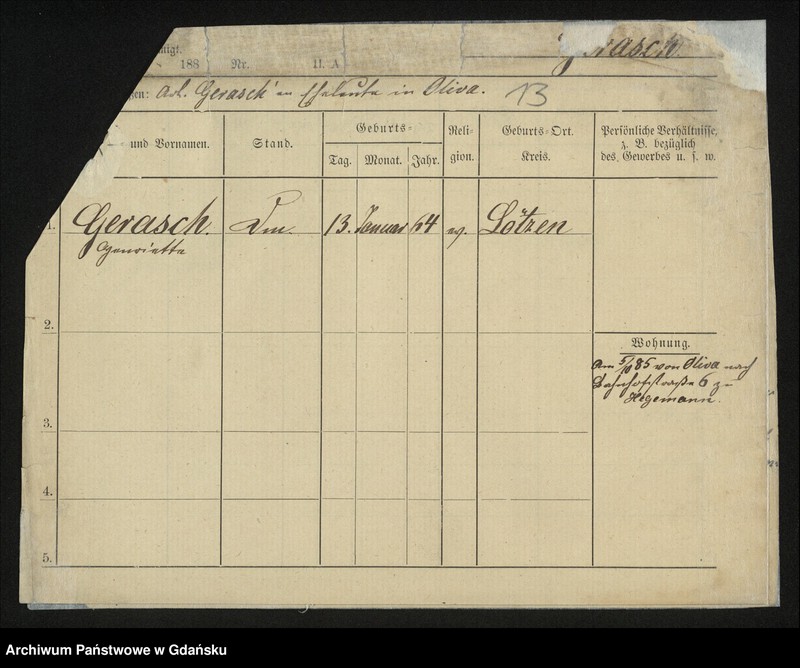 188 Nr. II. A
Arb. Gerasch'en Eheleute in Oliva. 13
und Vornamen. Stand. Geburts= Reli=gion. Geburts=Ort. Persönliche Verhältnisse,
Tag. Monat. Jahr. Kreis. z. B. bezüglich
des Gewerbes u. s. w.
1. Gerasch. 13. Januar 64 ev. Lötzen
Henriette
2.
Wohnung.
Am 5/10 85 von Oliva nach
Bahnhofstraße 6 zu
Hegemann.
3.
4.
5.
Archiwum Państwowe w Gdańsku